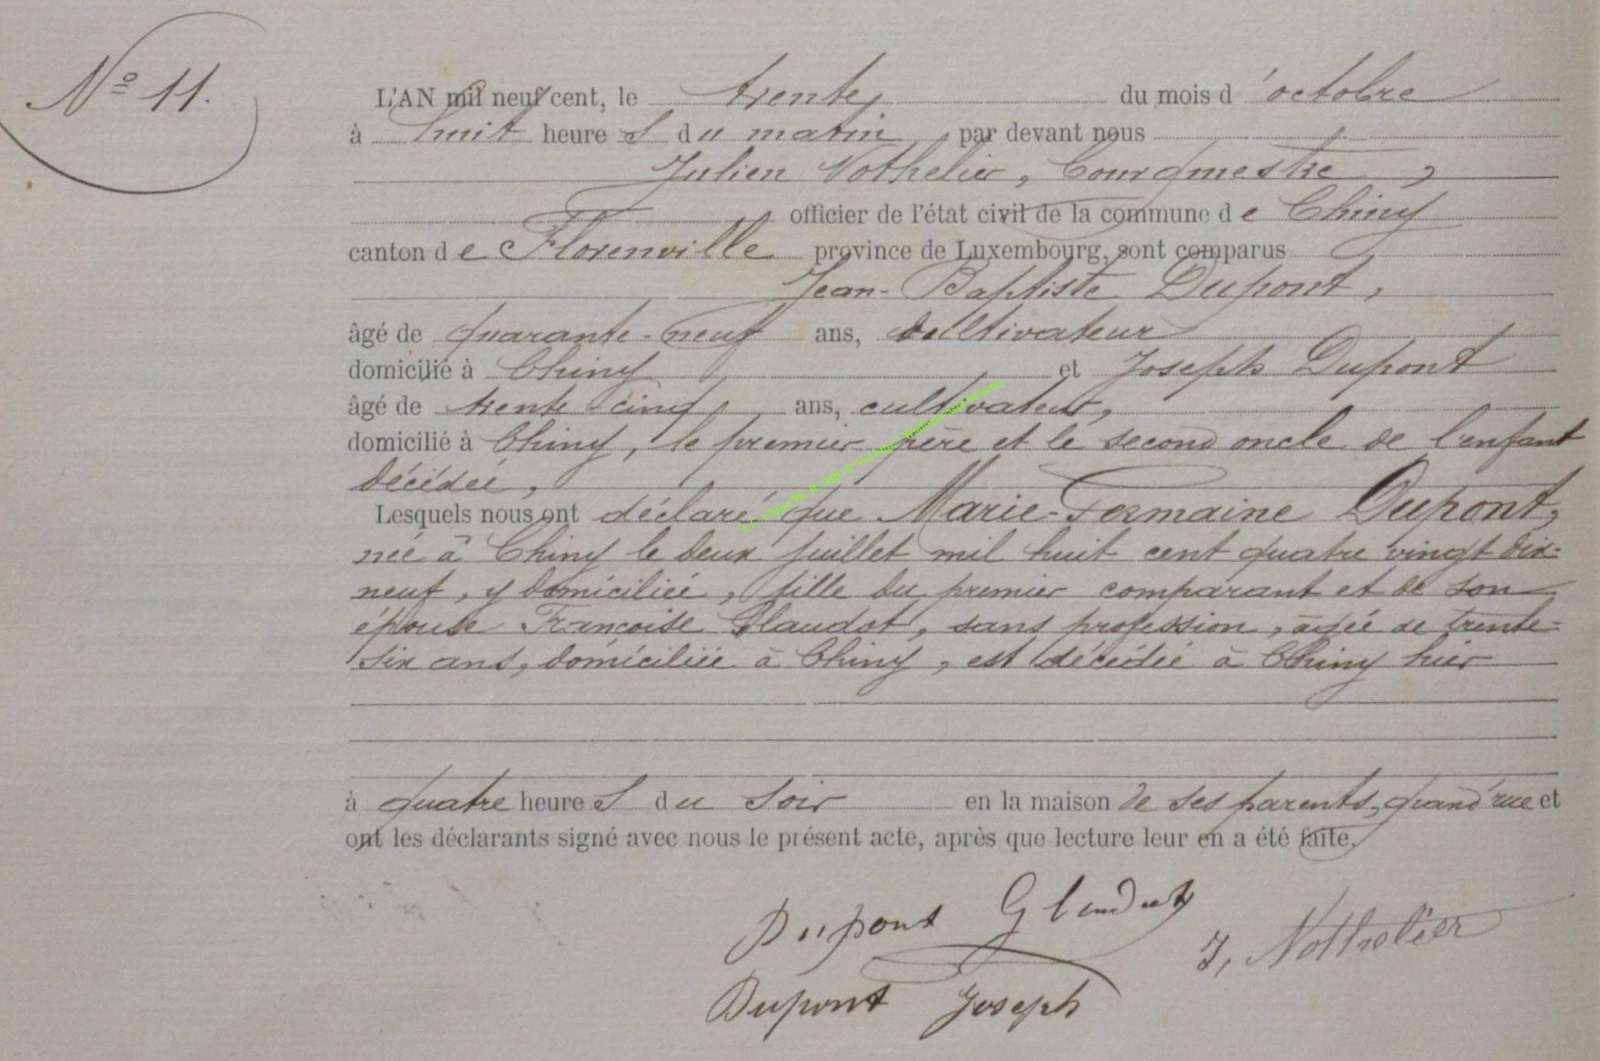 Nº 11.
L'AN mil neuf cent, le trente, du mois d'octobre
à huit heures du matin, par devant nous
Julien Nothelier, bourgmestre,
officier de l'état civil de la commune de Chiny
canton de Florenville province de Luxembourg, sont comparus
Jean-Baptiste Dupont,
âgé de quarante-neuf ans, cultivateur
domicilié à Chiny et Joseph Dupont
âgé de trente cinq ans, cultivateur,
domicilié à Chiny, le premier père et le second oncle de l'enfant
décédée,
Lesquels nous ont déclaré que Marie-Germaine Dupont,
née à Chiny le deux juillet mil huit cent quatre vingt dix-
neuf, y domiciliée, fille du premier comparant et de son
épouse Françoise Glaudot, sans profession, âgée de trente-
six ans, domiciliée à Chiny, est décédée à Chiny hier
à quatre heures du soir en la maison de ses parents, grand'rue et
ont les déclarants signé avec nous le présent acte, après que lecture leur en a été faite.
Dupont Glaudot
J, Nothelier
Dupont Joseph